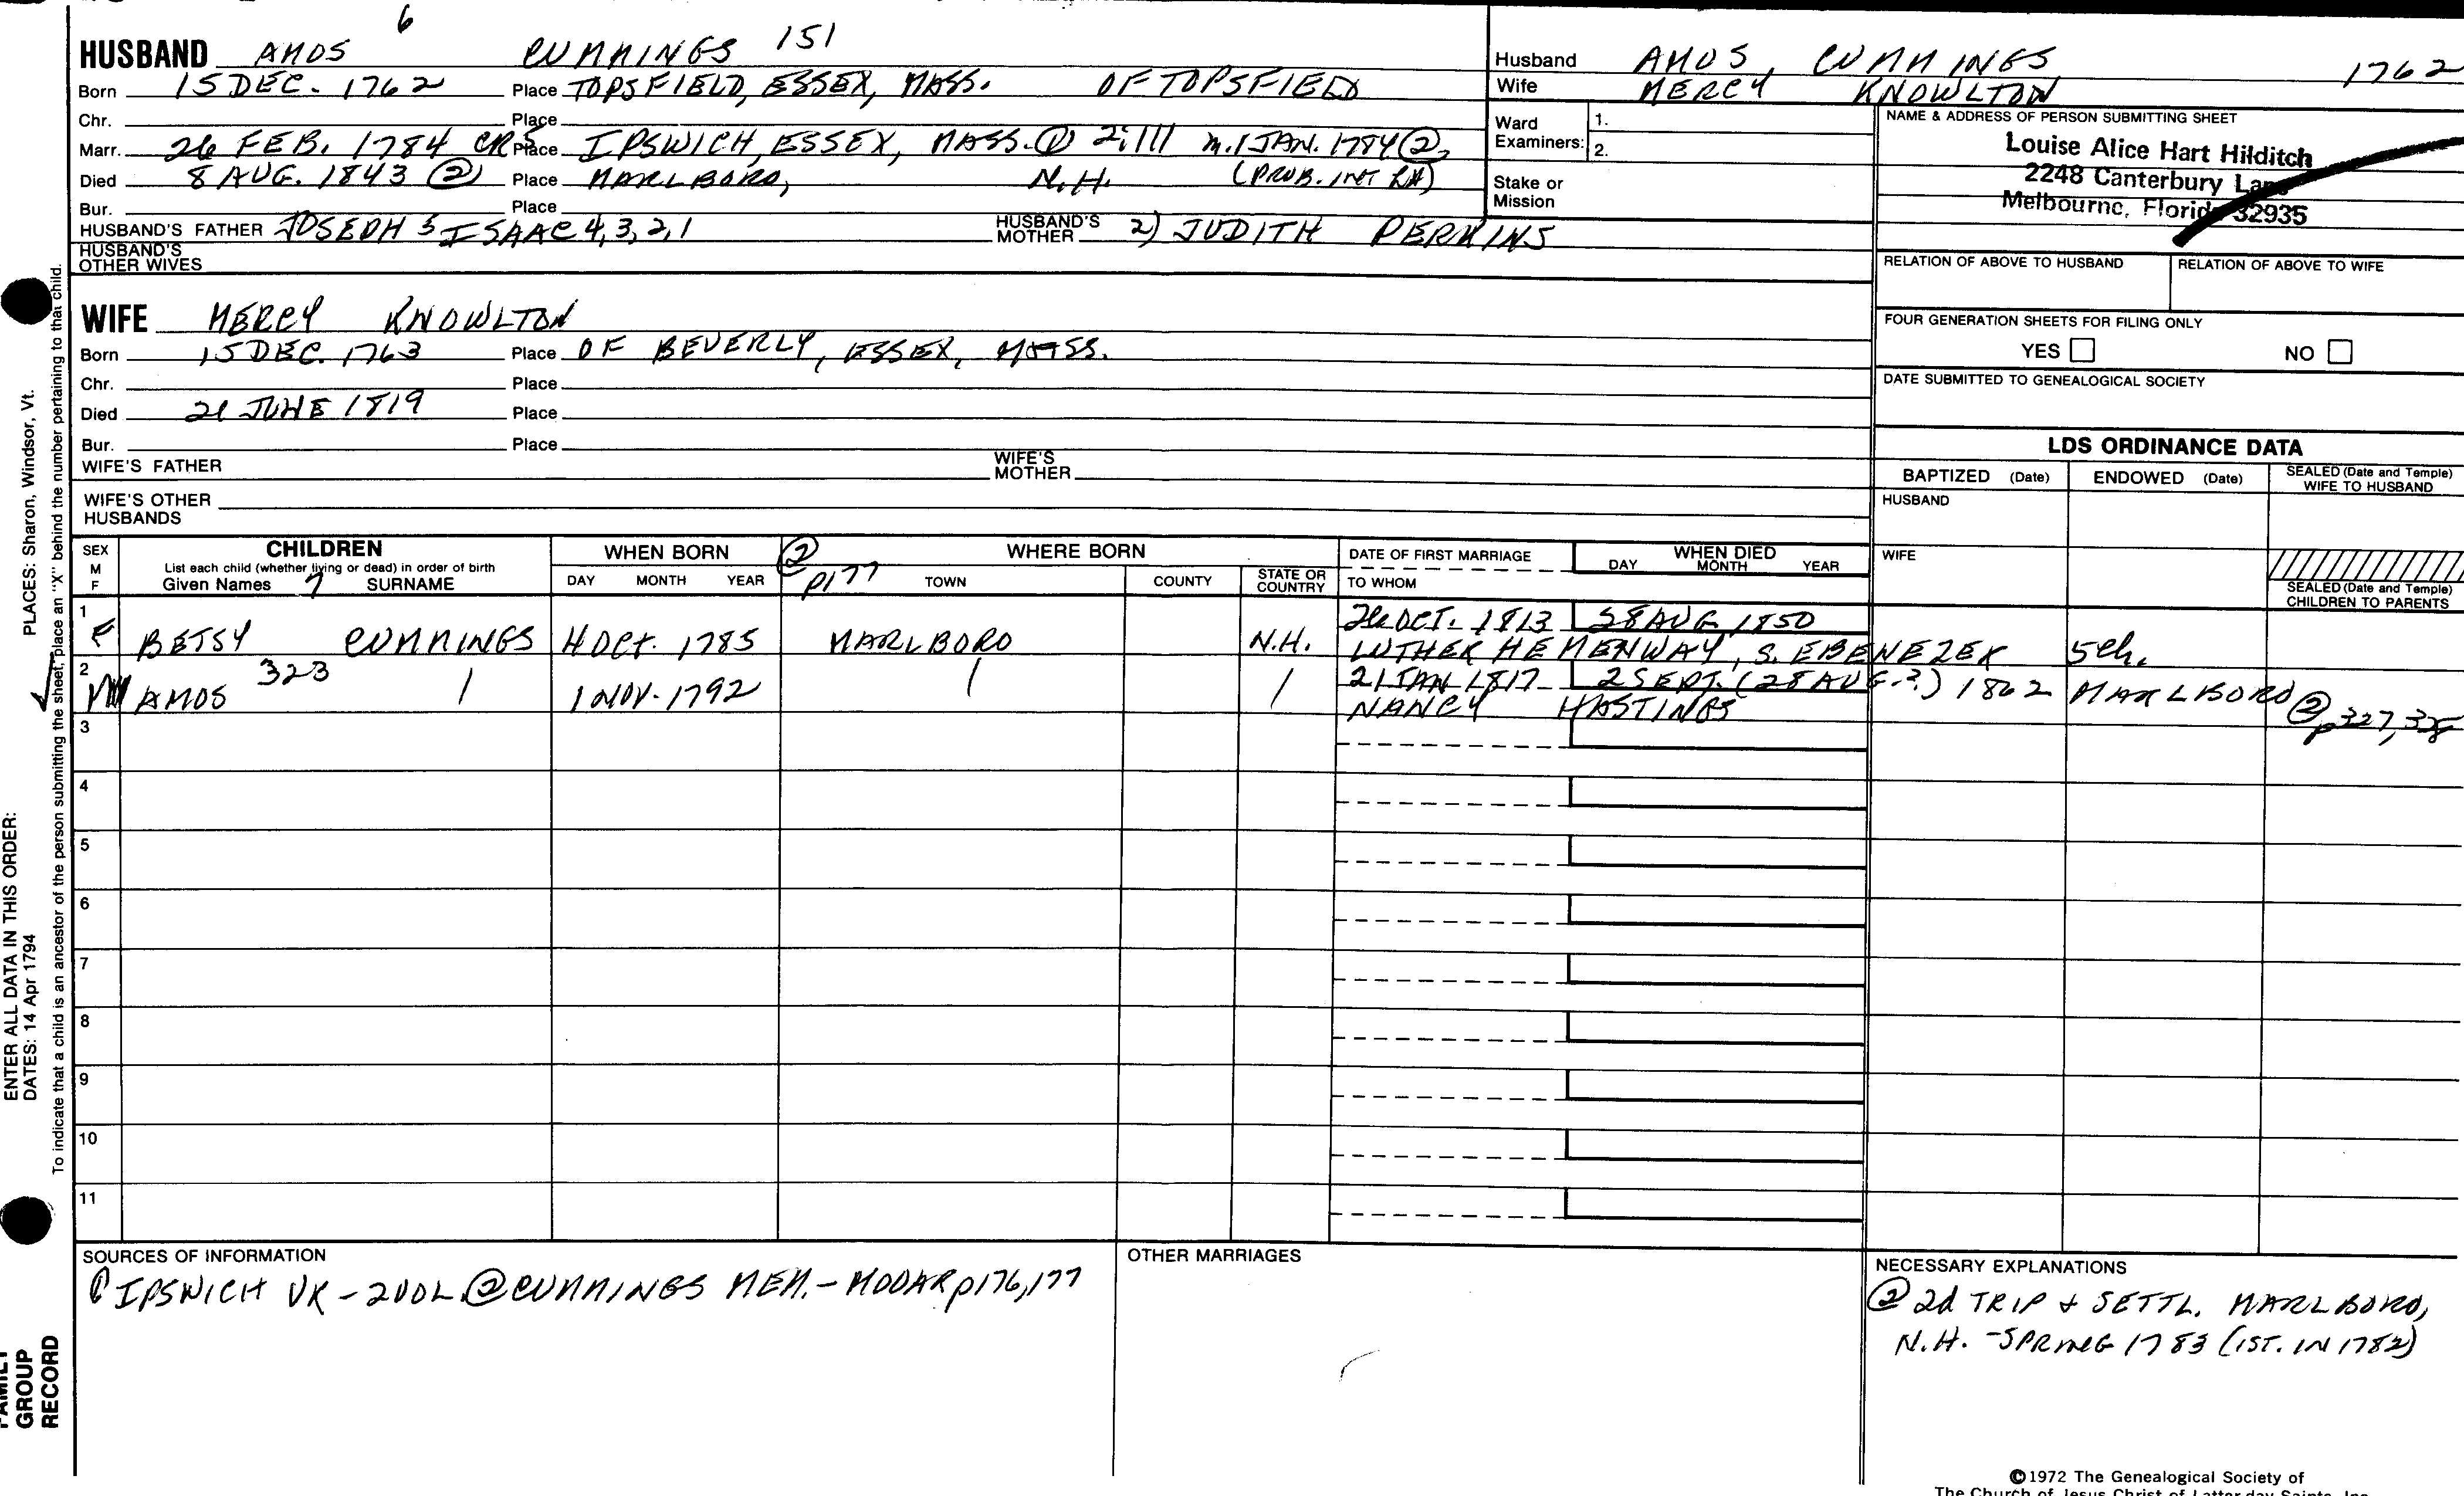 6
HUSBAND AMOS CUMMINGS 151
Born 15 DEC. 1762 Place TOPSFIELD, ESSEX, MASS. OF TOPSFIELD
Chr. Place
Marr. 26 FEB. 1784 CR5 Place IPSWICH, ESSEX, MASS. ① 2:111 m. 1 JAN. 1784 ②
Died 8 AUG. 1843 ② Place MARLBORO, N.H. (PROB. INT
Bur. Place
HUSBAND'S FATHER JOSEPH 5 ISAAC 4,3,2,1 HUSBAND'S MOTHER 2) JUDITH PERKINS
HUSBAND'S OTHER WIVES
WIFE MERCY KNOWLTON
Born 15 DEC. 1763 Place OF BEVERLY, ESSEX, MASS.
Chr. Place
Died 21 JUNE 1819 Place
Bur. Place
WIFE'S FATHER WIFE'S MOTHER
WIFE'S OTHER HUSBANDS
Husband AMOS CUMMINGS 1762
Wife MERCY KNOWLTON
Ward Examiners: 1.
2.
Stake or Mission
NAME & ADDRESS OF PERSON SUBMITTING SHEET
Louise Alice Hart Hilditch
2248 Canterbury Lane
Melbourne, Florida 32935
RELATION OF ABOVE TO HUSBAND RELATION OF ABOVE TO WIFE
FOUR GENERATION SHEETS FOR FILING ONLY
YES NO
DATE SUBMITTED TO GENEALOGICAL SOCIETY
LDS ORDINANCE DATA
BAPTIZED (Date) ENDOWED (Date) SEALED (Date and Temple) WIFE TO HUSBAND
HUSBAND
WIFE
SEALED (Date and Temple) CHILDREN TO PARENTS
SEX M F
CHILDREN
List each child (whether living or dead) in order of birth
Given Names 7 SURNAME
WHEN BORN
DAY MONTH YEAR
② p177
WHERE BORN
TOWN COUNTY STATE OR COUNTRY
DATE OF FIRST MARRIAGE
TO WHOM
WHEN DIED
DAY MONTH YEAR
1 F BETSY CUMMINGS 4 OCT. 1785 MARLBORO N.H. 26 OCT. 1813 28 AUG 1850
LUTHER HEMENWAY, S. EBENEZER 5ch.
2 M AMOS 323 / 1 NOV. 1792 / / 21 JAN 1817 2 SEPT. (28 AUG.?) 1862 MARLBORO ② p327,328
NANCY HASTINGS
3
4
5
6
7
8
9
10
11
SOURCES OF INFORMATION
① IPSWICH VR - 2VOL ② CUMMINGS MEM. - MOOAR p176,177
OTHER MARRIAGES
NECESSARY EXPLANATIONS
② 2d TRIP & SETTL. MARLBORO,
N.H. - SPRING 1783 (1ST. IN 1782)
©1972 The Genealogical Society of
The Church of Jesus Christ of Latter-day Saints, Inc.
PLACES: Sharon, Windsor, Vt.
ENTER ALL DATA IN THIS ORDER:
DATES: 14 Apr 1794
To indicate that a child is an ancestor of the person submitting the sheet, place an "X" behind the number pertaining to that child.
FAMILY
GROUP
RECORD